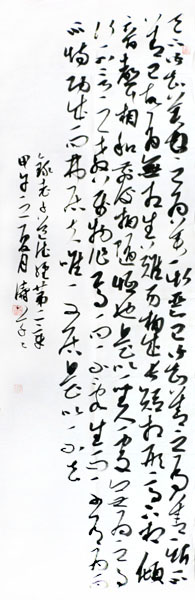 天下皆知美之為美斯惡已皆知善之為善斯不
善已故有無相生難易相成長短相形高下相傾
音聲相和前後相隨恆也是以聖人處無為之事
行不言之教萬物作焉而不辭生而不有為而
不恃功成而弗居夫唯弗居是以不去
錄老子道德經第二章
甲午之夏月濤